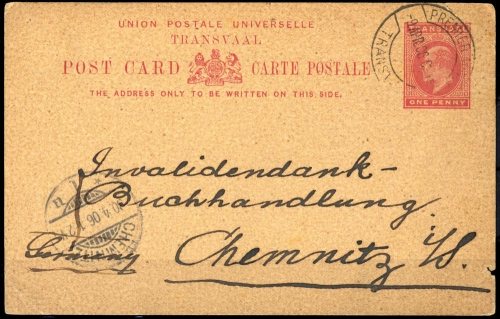 UNION POSTALE UNIVERSELLE
TRANSVAAL
POST CARD CARTE POSTALE
THE ADDRESS ONLY TO BE WRITTEN ON THIS SIDE.
PREMIER
TRANSV
ONE PENNY
Invalidendank-
Buchhandlung
Chemnitz i/S.
Germany
CHEMNITZ
4.06